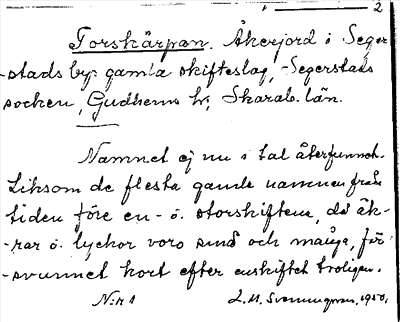 1 — 2
Torskärpan. Åkerjord i Seger-
-stads by: gamla skifteslag, Segerstads
socken, Gudhems hd, Skarab. län.
Namnet ej nu i tal återfunnet.
Liksom de flesta gamla namnen från
tiden före en- o. storskiftena, då åk-
-rar o. lyckor voro små och många, för-
-svunnet kort efter enskiftet troligen.
N:r 1 L. M. Svenungsson, 1950.